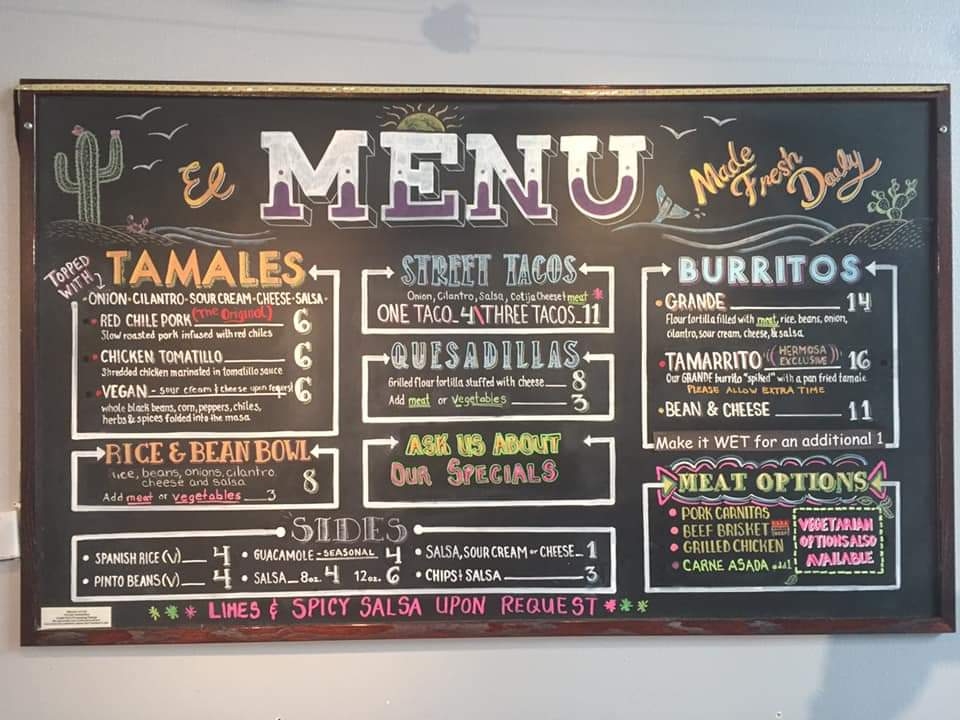 El MENU Made Fresh Daily
TOPPED WITH
TAMALES
·ONION·CILANTRO·SOUR CREAM·CHEESE·SALSA·
• RED CHILE PORK (The Original) 6
Slow roasted pork infused with red chiles
• CHICKEN TOMATILLO 6
Shredded chicken marinated in tomatillo sauce
• VEGAN - sour cream & cheese upon request 6
whole black beans, corn, peppers, chiles,
herbs & spices folded into the masa
RICE & BEAN BOWL
rice, beans, onions, cilantro,
cheese and salsa 8
Add meat or vegetables 3
STREET TACOS
Onion, Cilantro, Salsa, Cotija Cheese & meat *
ONE TACO 4 \ THREE TACOS 11
QUESADILLAS
Grilled flour tortilla stuffed with cheese 8
Add meat or vegetables 3
ASK US ABOUT
OUR SPECIALS
BURRITOS
• GRANDE 14
Flour tortilla filled with meat, rice, beans, onion,
cilantro, sour cream, cheese, & salsa
• TAMARRITO (HERMOSA EXCLUSIVE) 16
Our GRANDE burrito "spiked" with a pan fried tamale
PLEASE ALLOW EXTRA TIME
• BEAN & CHEESE 11
Make it WET for an additional 1
MEAT OPTIONS
• PORK CARNITAS
• BEEF BRISKET
• GRILLED CHICKEN
• CARNE ASADA add 1
VEGETARIAN
OPTIONS ALSO
AVAILABLE
SIDES
• SPANISH RICE (V) 4 • GUACAMOLE - SEASONAL 4 • SALSA, SOUR CREAM or CHEESE 1
• PINTO BEANS (V) 4 • SALSA 8oz. 4 12oz. 6 • CHIPS & SALSA 3
LIMES & SPICY SALSA UPON REQUEST